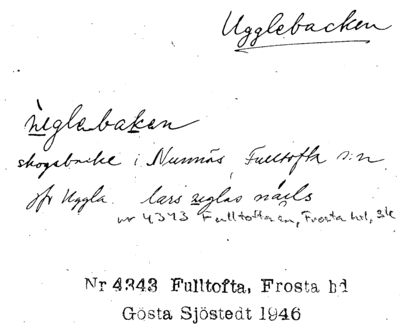 Ugglebacken
ùeglabaken
skogsbacke i Nunnäs, Fulltofta s:n
jfr Uggla. lars ueglas
nr 4343 Fulltofta sn, Frosta hd, Sk
Nr 4343 Fulltofta, Frosta hd
Gösta Sjöstedt 1946